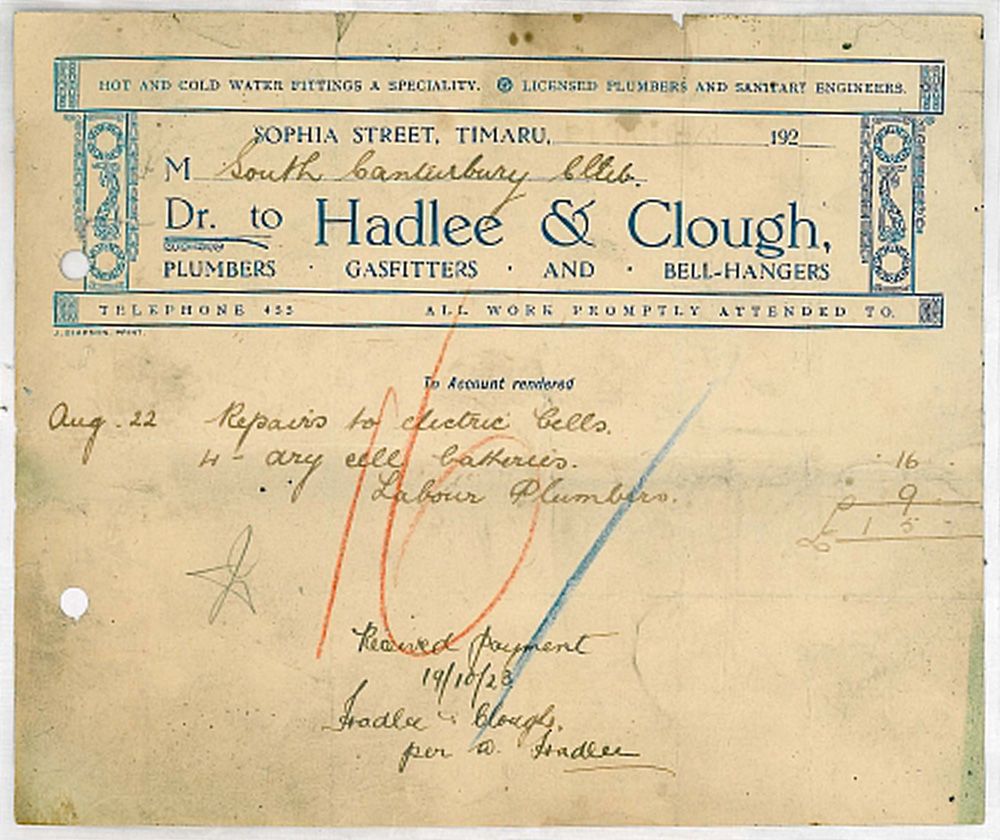 HOT AND COLD WATER FITTINGS A SPECIALITY. LICENSED PLUMBERS AND SANITARY ENGINEERS.
SOPHIA STREET, TIMARU, 192
M South Canterbury Club.
Dr. to Hadlee & Clough,
PLUMBERS · GASFITTERS · AND · BELL-HANGERS
TELEPHONE 455 ALL WORK PROMPTLY ATTENDED TO.
PRINT.
To Account rendered
Aug. 22 Repairs to electric bells.
4 - dry cell batteries. 16
Labour Plumbers. 9
£ 1 5
16
Received payment
19/10/23
Hadlee & Clough.
per a. Hadlee